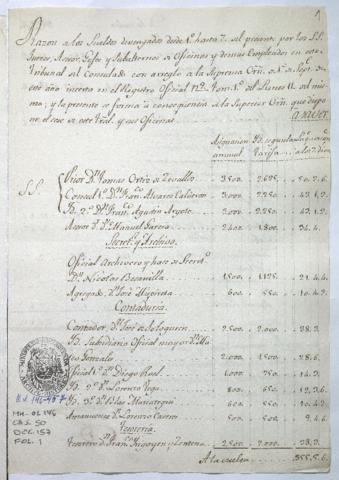 1
Razon de los Sueldos devengados desde 1º hasta 7 del presente por los S.S.
Jueces, Asesor, Gefes y Subalternos de Oficinas y demas Empleados en este
Tribunal del Consulado con arreglo a la Suprema Orñ. de de Sept. de
este año incerta en el Registro Oficial Nº Tom. 1º del Lunes 11 del mis-
mo; y la presente se forma à conseqüencia de la Superior Orñ. que dispo-
ne el cese de este Tral. y sus Oficinas.
a saver.
Asignacion anual
Yd. segun la Tarifa
S.S.
Prior Dn. Tomas Ortiz de Zevallos 3500. 2625. 50. 2. 6.
Consul 1º Dn. Franco. Alvarez Calderon 3000. 2250. 43. 1. 2.
Yd. 2º Dn. Franco. Agustin Argote 3000. 2250. 43. 1. 2.
Asesor Dr. Dn. Manuel Garcia 2400. 1800. 34. 4.
Secreta. y Archivo.
Oficial Archivero y hace de Secreto.
Dn. Nicolas Becanilla 1500. 1125. 21. 4. 4.
Agregado Dn. José 600. 550. 10. 4. 3.
Contaduria.
Contador Dn. José de 2500. 2000. 38. 3.
Yd. Subsidiario Oficial mayor Dn. Ma-
teo Gonzalo 2000. 1500. 28. 6.
Oficial 1º Dn. Diego Real 1000. 750. 14. 3.
Yd. 2º Dn. Lorenzo Vega 800. 650. 12. 3. 6.
Yd. 3º Dn. Blas Mariategui 600. 550. 10. 4. 3.
Amanuence Dn. Lorenzo Castro 500. 500. 9. 4. 6.
Tesoreria.
Tesorero Dn. Franco. Yrigoyen y Zenteno 2500. 2000. 38. 3.
A la vuelta 355. 5. 6.
MH-OL 146
CAJ. 50
DOC. 157
FOL. 1